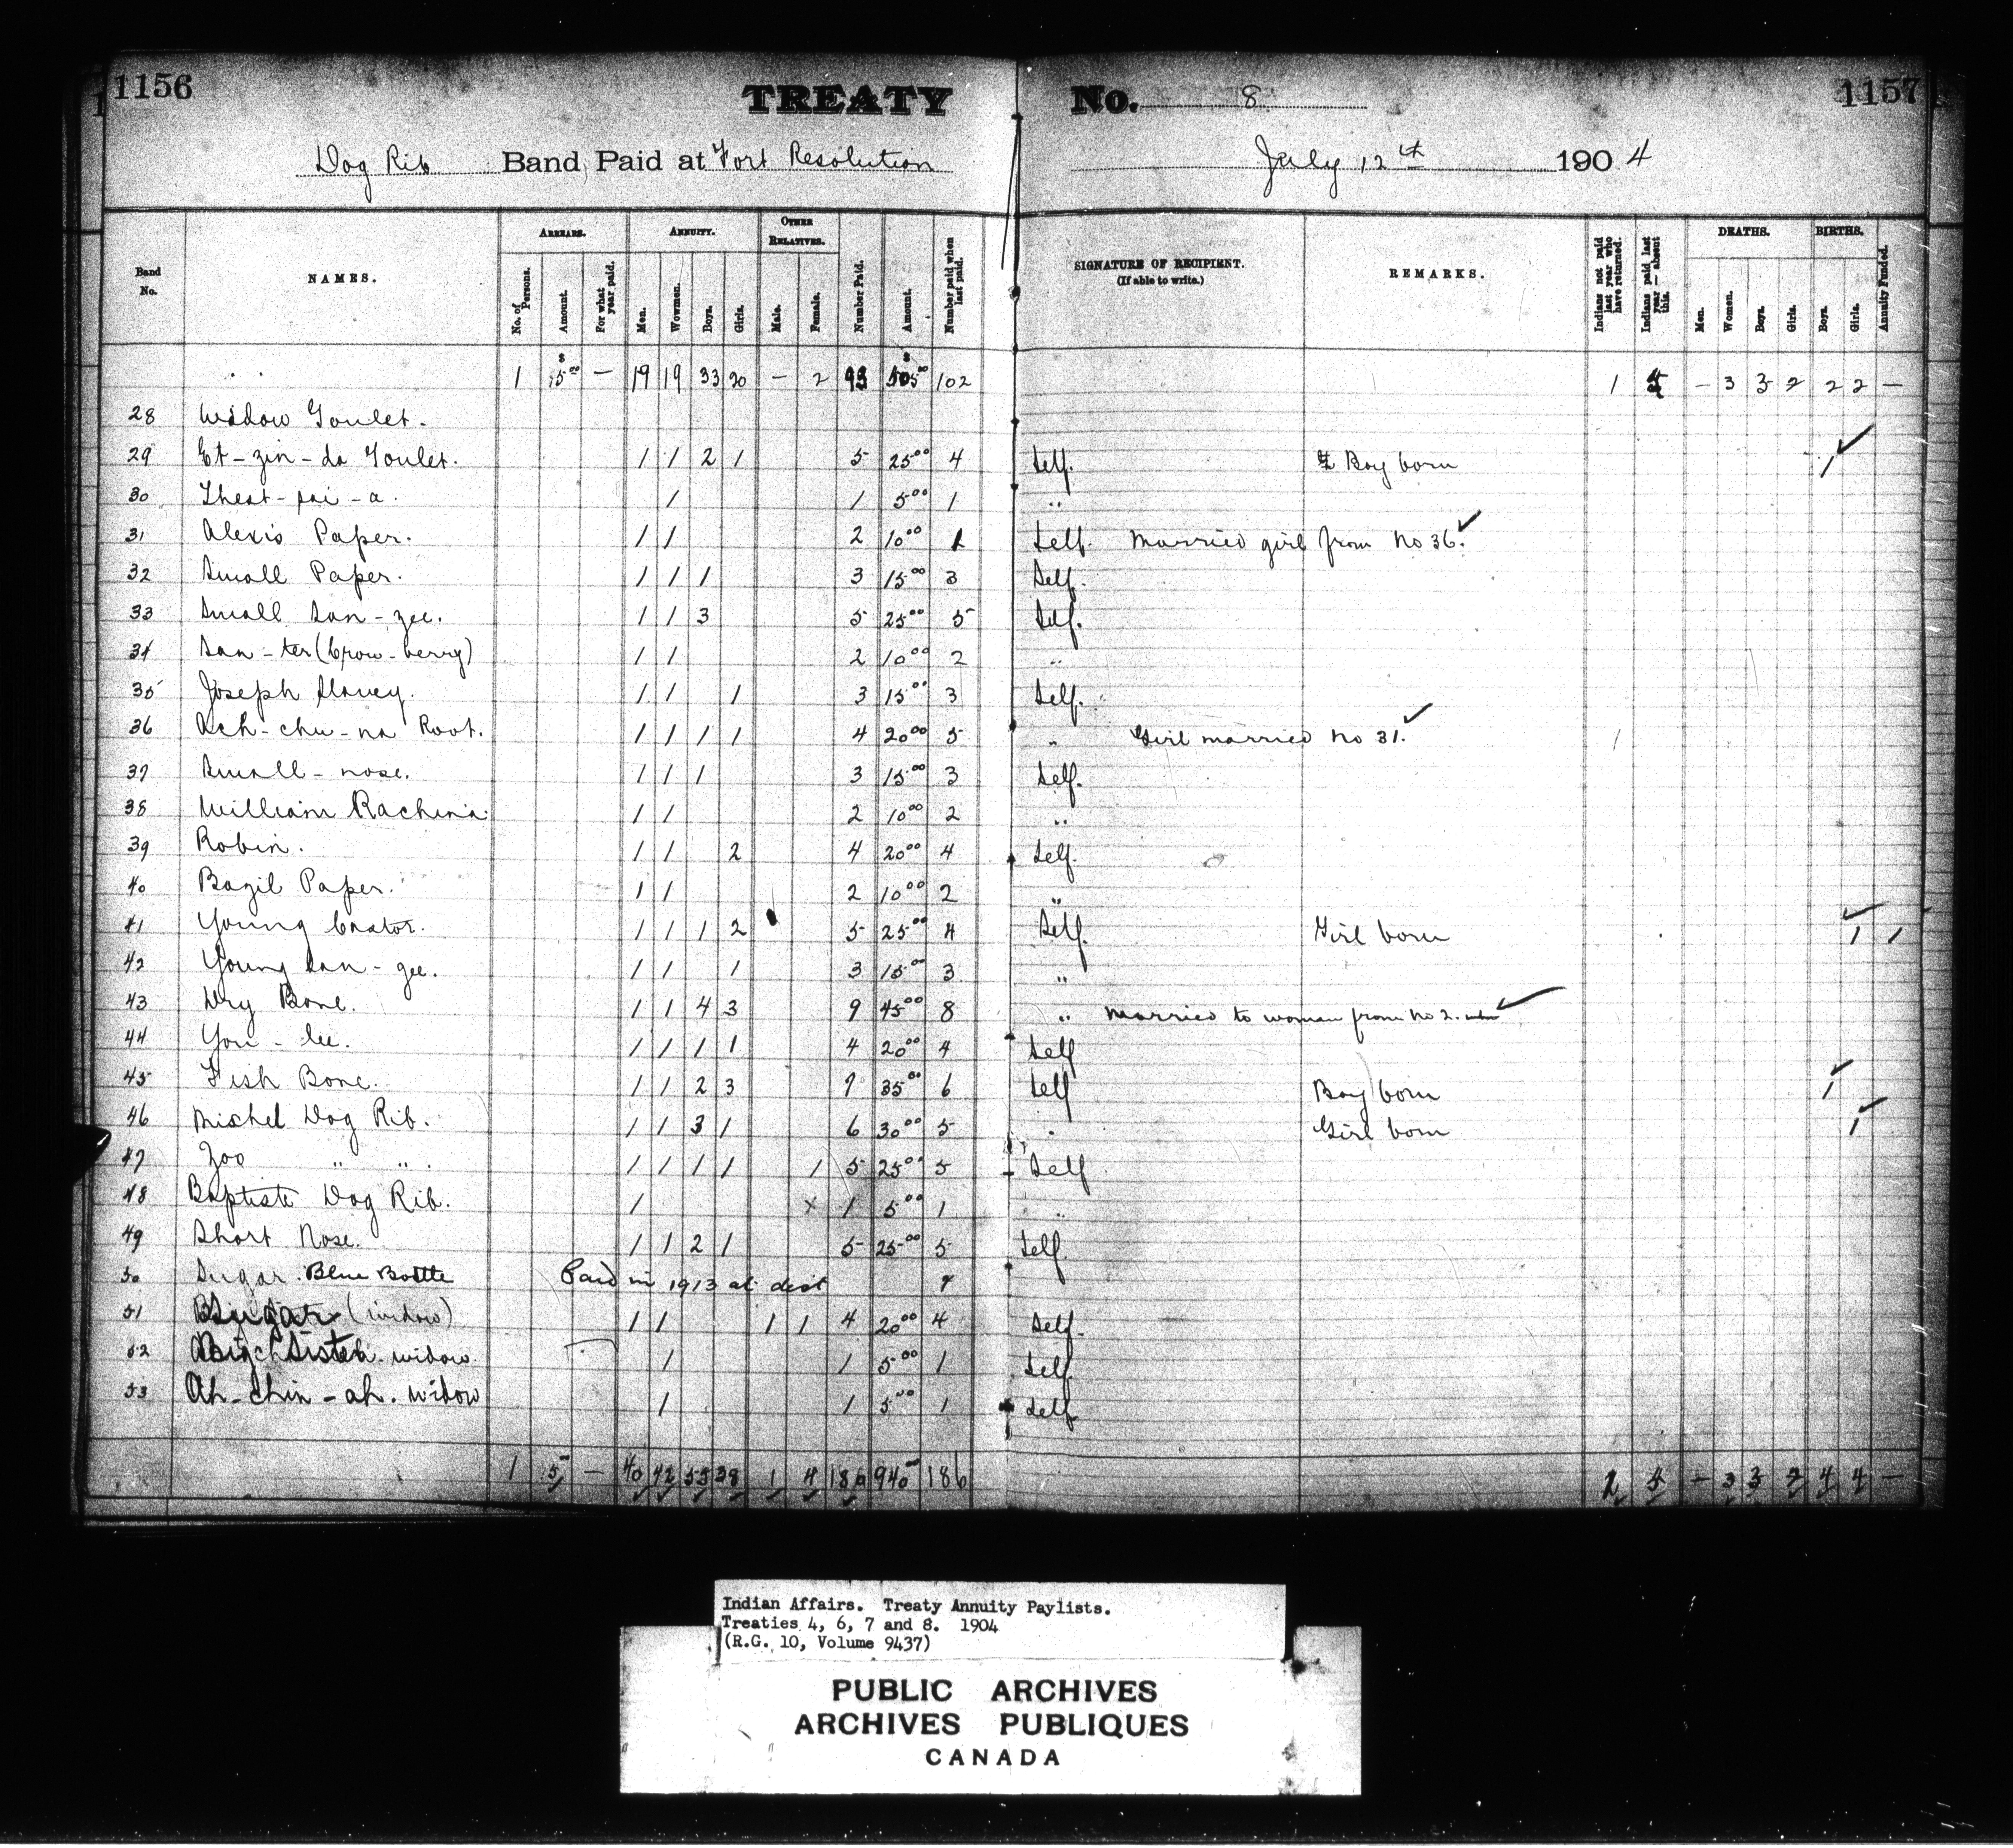 1156 TREATY No. 8 1157
Dog Rib Band Paid at Fort Resolution July 12th 1904
Band No. NAMES. ARREARS. No. of Persons. Amount. For what year paid. ANNUITY. Men. Women. Boys. Girls. OTHER RELATIVES. Male. Female. Number Paid. Amount. Number paid when last paid. SIGNATURE OF RECIPIENT. (If able to write.) REMARKS. Indians not paid last year who have returned. Indians paid last year — absent this. DEATHS. Men. Women. Boys. Girls. BIRTHS. Boys. Girls. Annuity Funded.
1 $ 5 00 — 19 19 33 20 — 2 93 $ 505 00 102 1 — 3 3 2 2 2 —
28 Widow Goulet.
29 Et-zin-da Goulet. 1 1 2 1 5 25 00 4 Self. Boy born 1
30 1 1 5 00 1 "
31 Alexis Paper. 1 1 2 10 00 1 Self. Married girl from No 36.
32 Small Paper. 1 1 1 3 15 00 3 Self.
33 Small San-zee. 1 1 3 5 25 00 5 Self.
34 San-ter (Crow-berry) 1 1 2 10 00 2 "
35 Joseph Slavey. 1 1 1 3 15 00 3 Self.
36 Ach-chu-na Root. 1 1 1 1 4 20 00 5 " Girl married No 31. 1
37 Small-nose. 1 1 1 3 15 00 3 Self.
38 William Rachina. 1 1 2 10 00 2 "
39 Robin. 1 1 2 4 20 00 4 Self.
40 Bazil Paper. 1 1 2 10 00 2 "
41 Young 1 1 1 2 5 25 00 4 Self. Girl born 1 1
42 Young San-gee. 1 1 1 3 15 00 3 "
43 Dry Bone. 1 1 4 3 9 45 00 8 " Married to woman from No 2.
44 You-lee. 1 1 1 1 4 20 00 4 Self
45 Fish Bone. 1 1 2 3 7 35 00 6 Self Boy born 1
46 Michel Dog Rib. 1 1 3 1 6 30 00 5 " Girl born 1
47 Zoo " " . 1 1 1 1 1 5 25 00 5 Self
48 Baptiste Dog Rib. 1 x 1 5 00 1 "
49 Short Nose. 1 1 2 1 5 25 00 5 Self
50 Sugar. Blue Bottle Paid in 1913 at
51 (widow) 1 1 1 1 4 20 00 4 Self.
52 Big Sister. widow. 1 1 5 00 1 Self
53 Ah-chin-ah. widow 1 1 5 00 1 Self
1 5 — 40 42 55 38 1 4 180 940 186 2 5 — 3 3 2 4 4 —
Indian Affairs. Treaty Annuity Paylists.
Treaties 4, 6, 7 and 8. 1904
(R.G. 10, Volume 9437)
PUBLIC ARCHIVES
ARCHIVES PUBLIQUES
CANADA